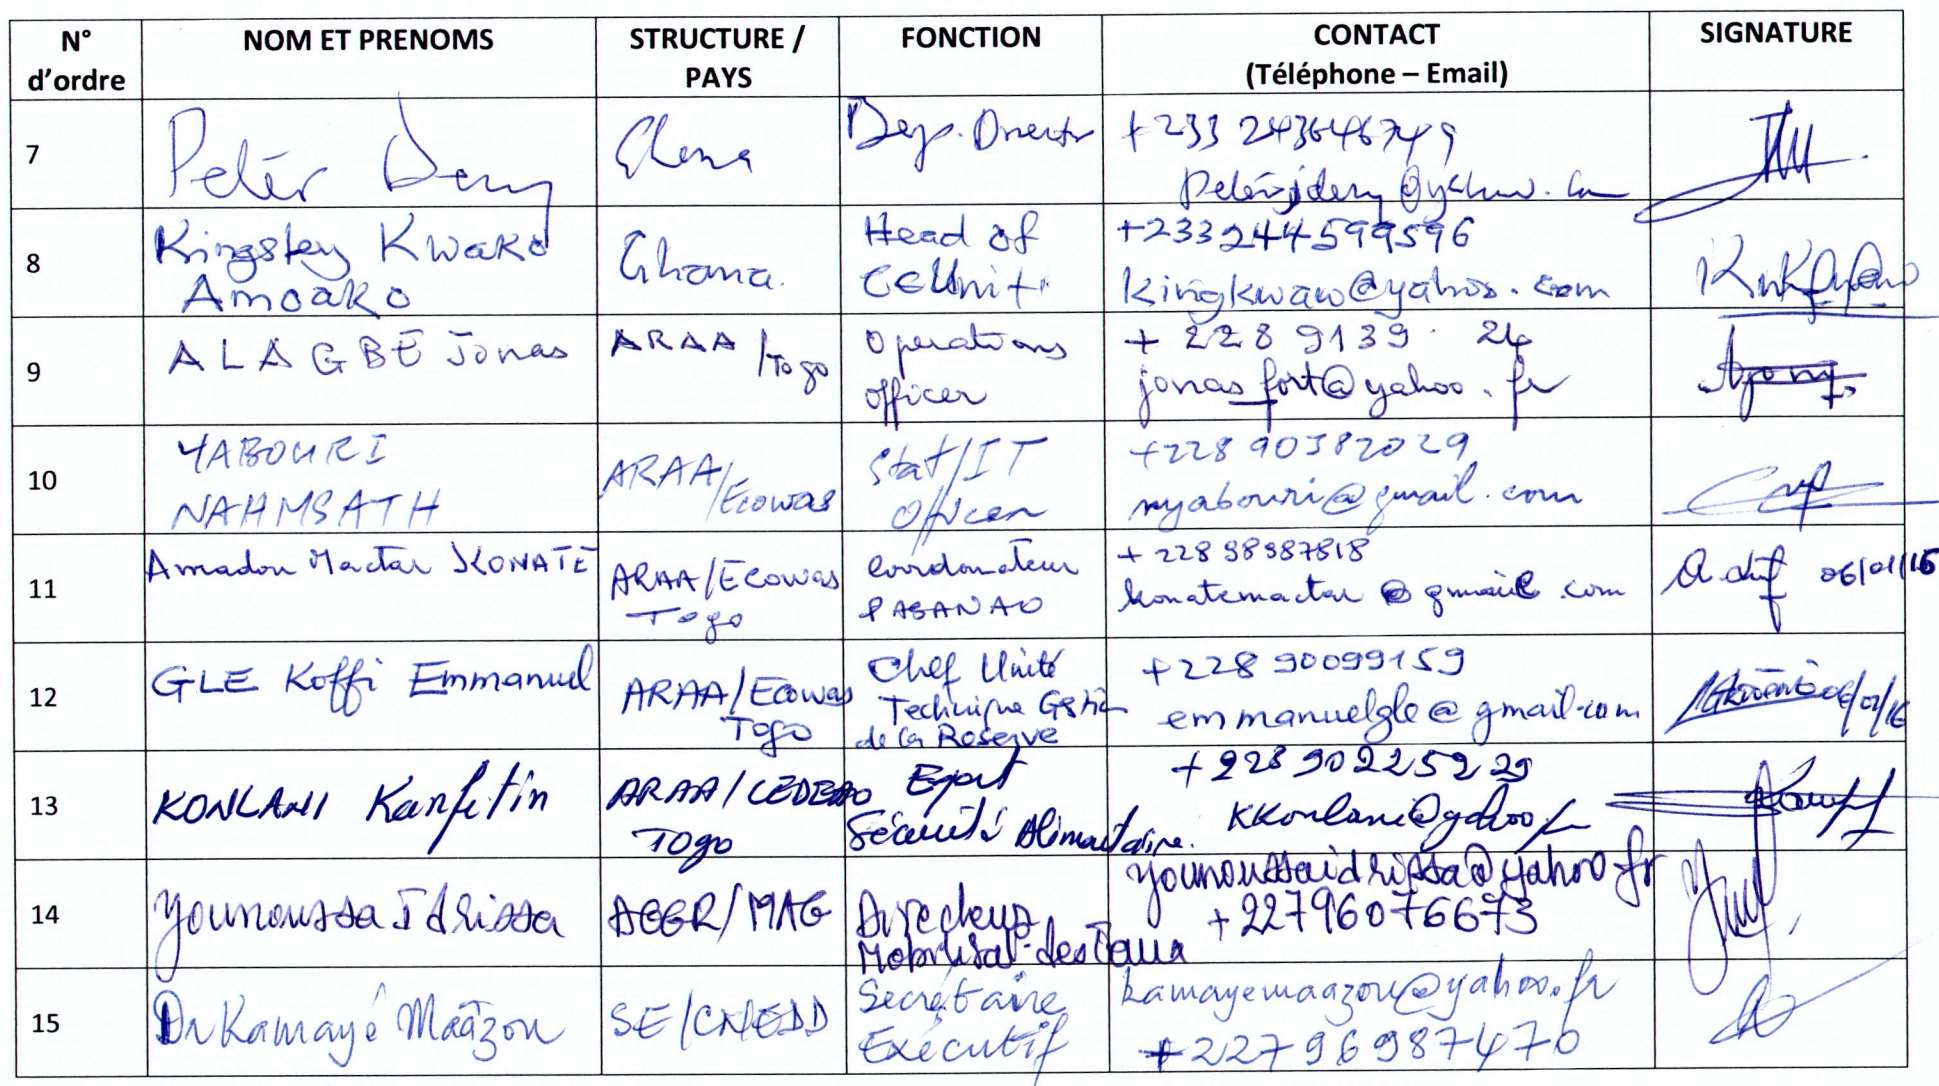 N° d'ordre NOM ET PRENOMS STRUCTURE / PAYS FONCTION CONTACT (Téléphone – Email) SIGNATURE
7 Peter Dery Ghana Dep. Director +233 243646749
8 Kingsley Kwako Amoako Ghana. Head of CCUnit +233244599596 kingkwaw@yahoo.com
9 ALAGBE Jonas ARAA/Togo Operations officer + 228 9139 24 jonas_fort@yahoo.fr
10 YABOURI NAHMSATH ARAA/Ecowas Stat/IT Officer +228 90382029 nyabouri@gmail.com
11 Amadou Mactar KONATE ARAA/Ecowas Togo Coordonateur PASANAO + 228 98987818 konatemactar@gmail.com 06/01/16
12 GLE Koffi Emmanuel ARAA/Ecowas Togo Chef Unité Technique de la Reserve +228 90099159 emmanuelgle@gmail.com
13 KONLANI Kanfitin ARAA/CEDEAO Togo Expert Sécurité Alimentaire. +228 90225229 kkonlani@yahoo.fr
14 Younoussa Idrissa /MAG Directeur des Eaux younoussaidrissa@yahoo.fr +22796076673
15 Dr Kamayé Maâzou SE/CNEDD Secrétaire Exécutif kamayemaazou@yahoo.fr +22796987470